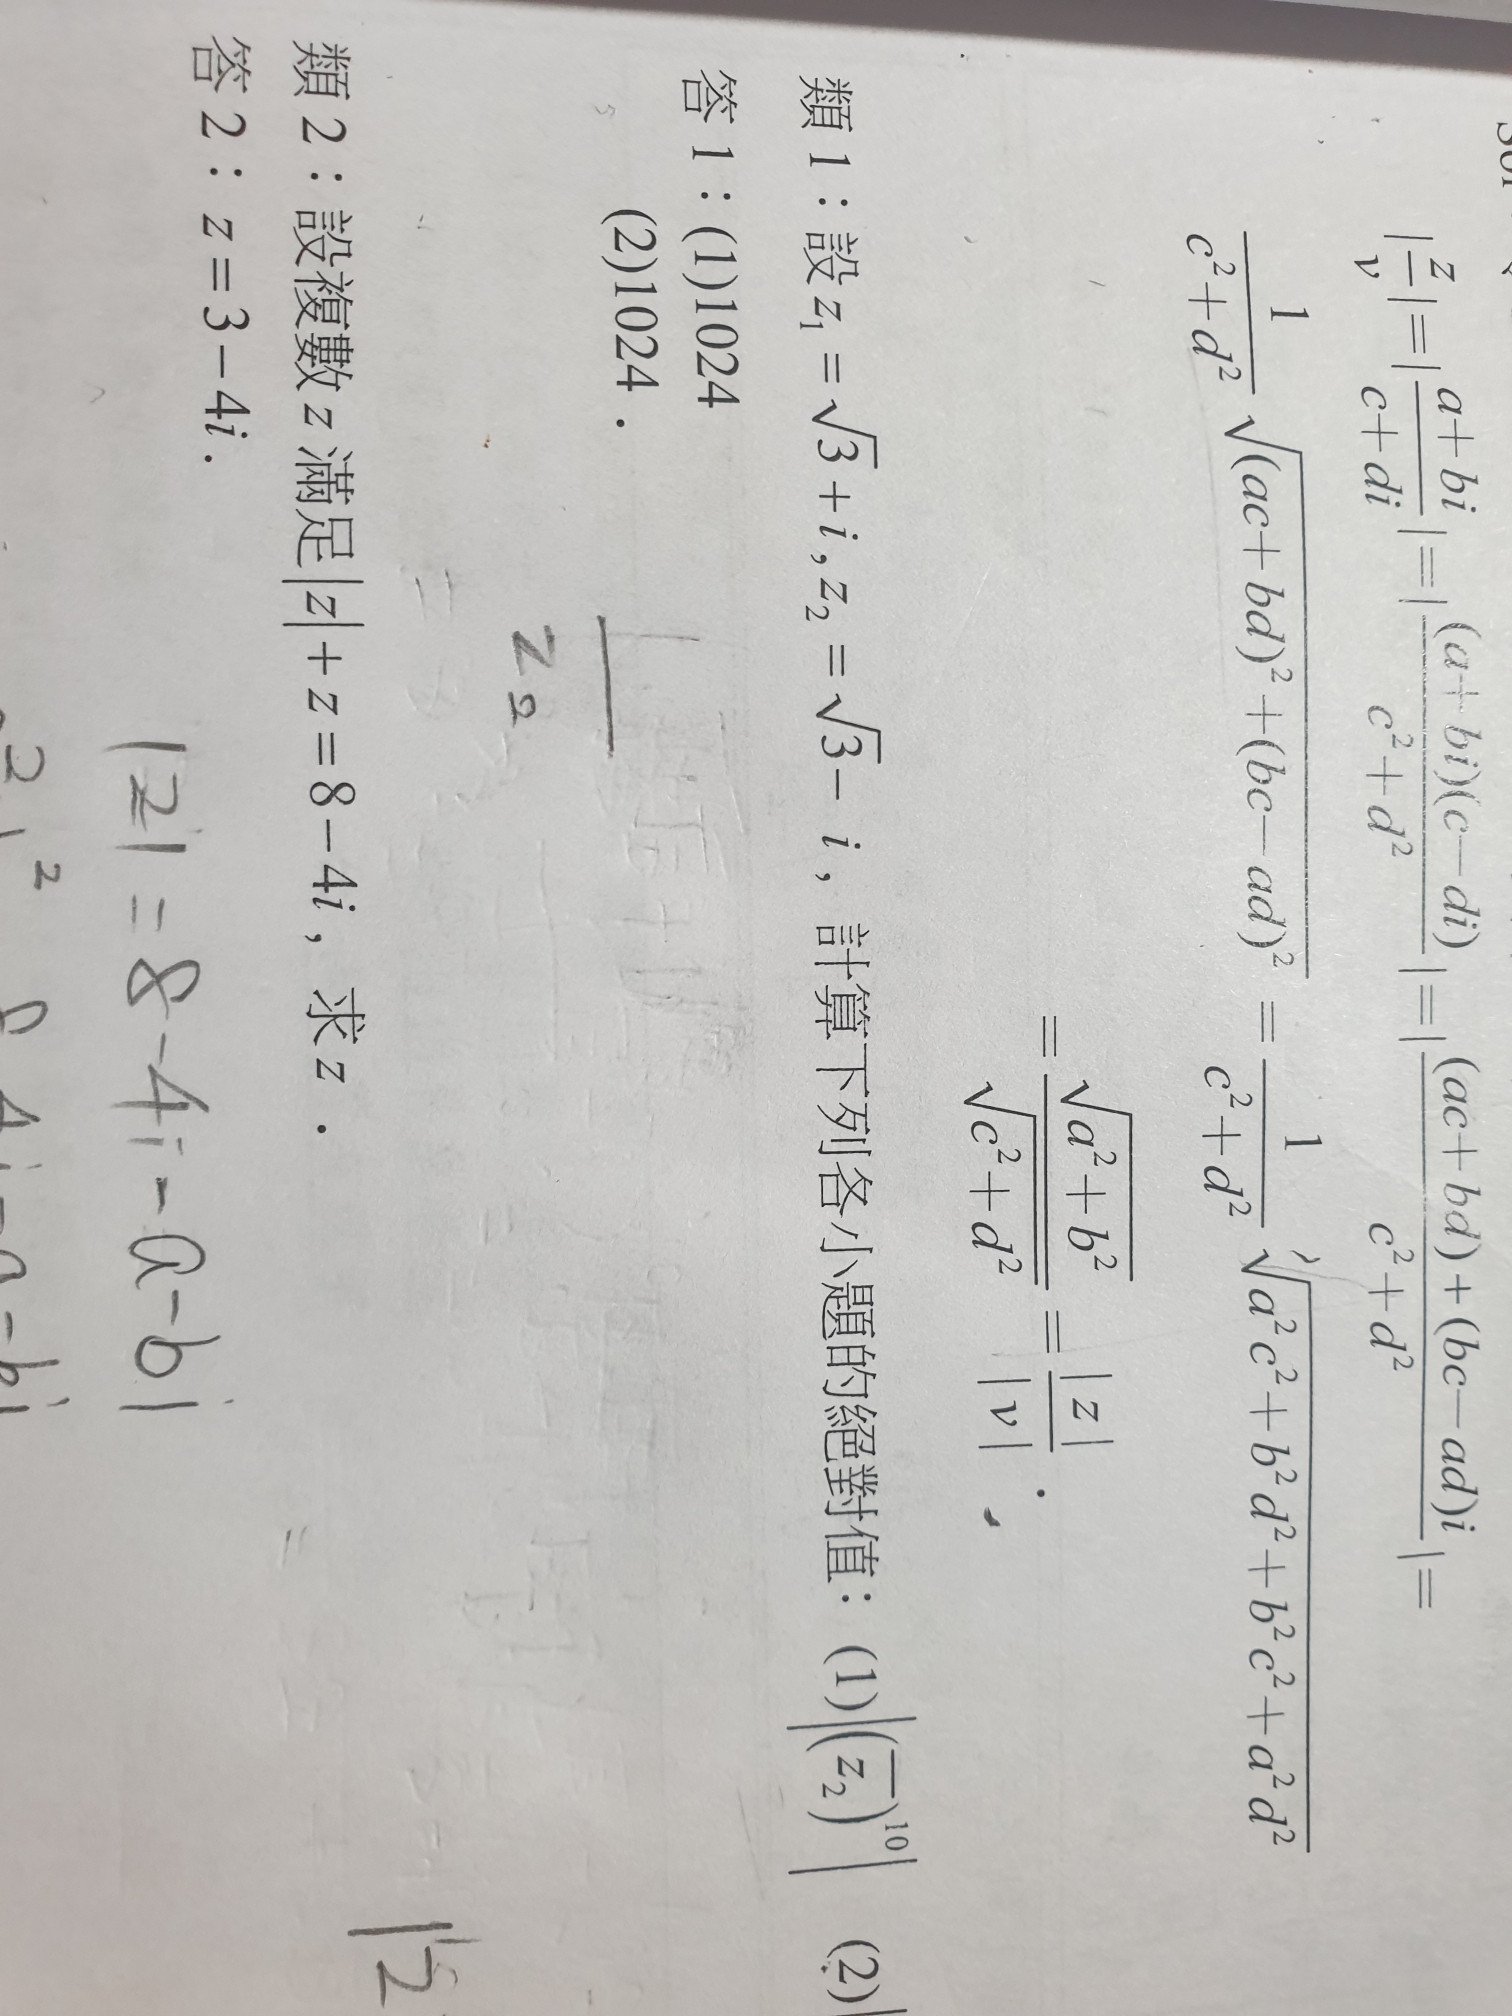 |z/v|=|(a+bi)/(c+di)|=|(a+bi)(c−di)/(c²+d²)|=|((ac+bd)+(bc−ad)i)/(c²+d²)|=
1/(c²+d²) √((ac+bd)²+(bc−ad)²) = 1/(c²+d²) √(a²c²+b²d²+b²c²+a²d²)
= √(a²+b²)/√(c²+d²) = |z|/|v|.
類1:設 z₁=√3+i, z₂=√3−i, 計算下列各小題的絕對值: (1)|(z̅₂)¹⁰| (2)|
答1:(1)1024
(2)1024.
z₂
類2:設複數 z 滿足|z|+z=8−4i, 求 z.
|z
答2:z=3−4i.
|z|=8-4i-a-bi